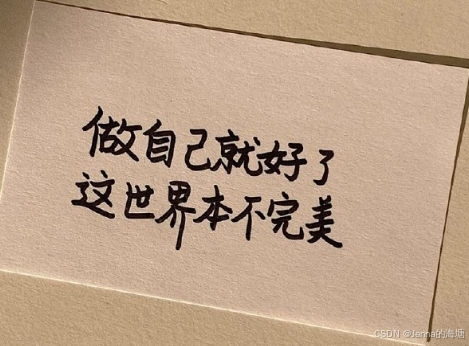 做自己就好了
这世界本不完美
CSDN @Janna的海塘